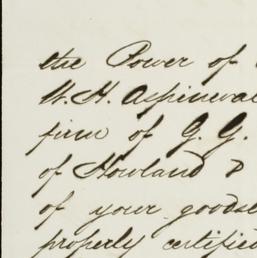 the Power of
W. H. Aspinwal
firm of G. G.
of Howland &
of your goods
properly certifie